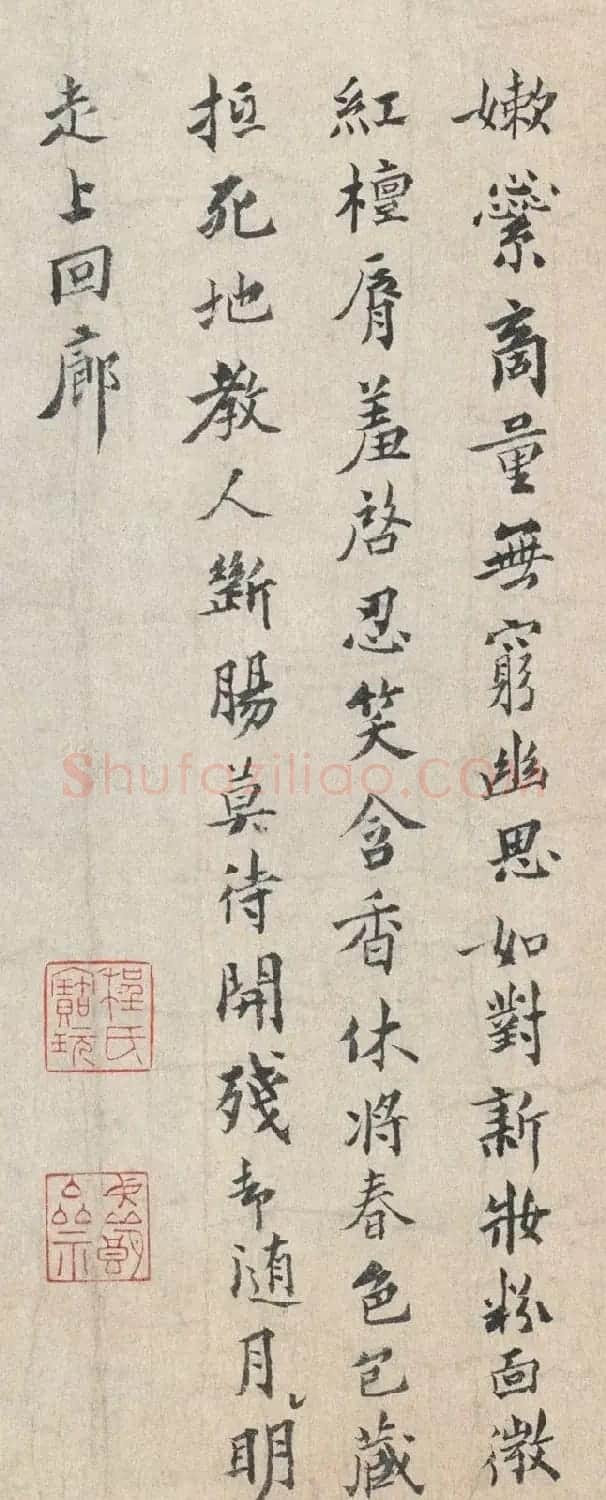 嫩蘂商量無窮幽思如對新妝粉面微
紅檀脣羞啓忍笑含香休將春色包藏
抵死地教人斷腸莫待開殘却随月明
走上回廊
程氏寶玩
Shufaziliao.com